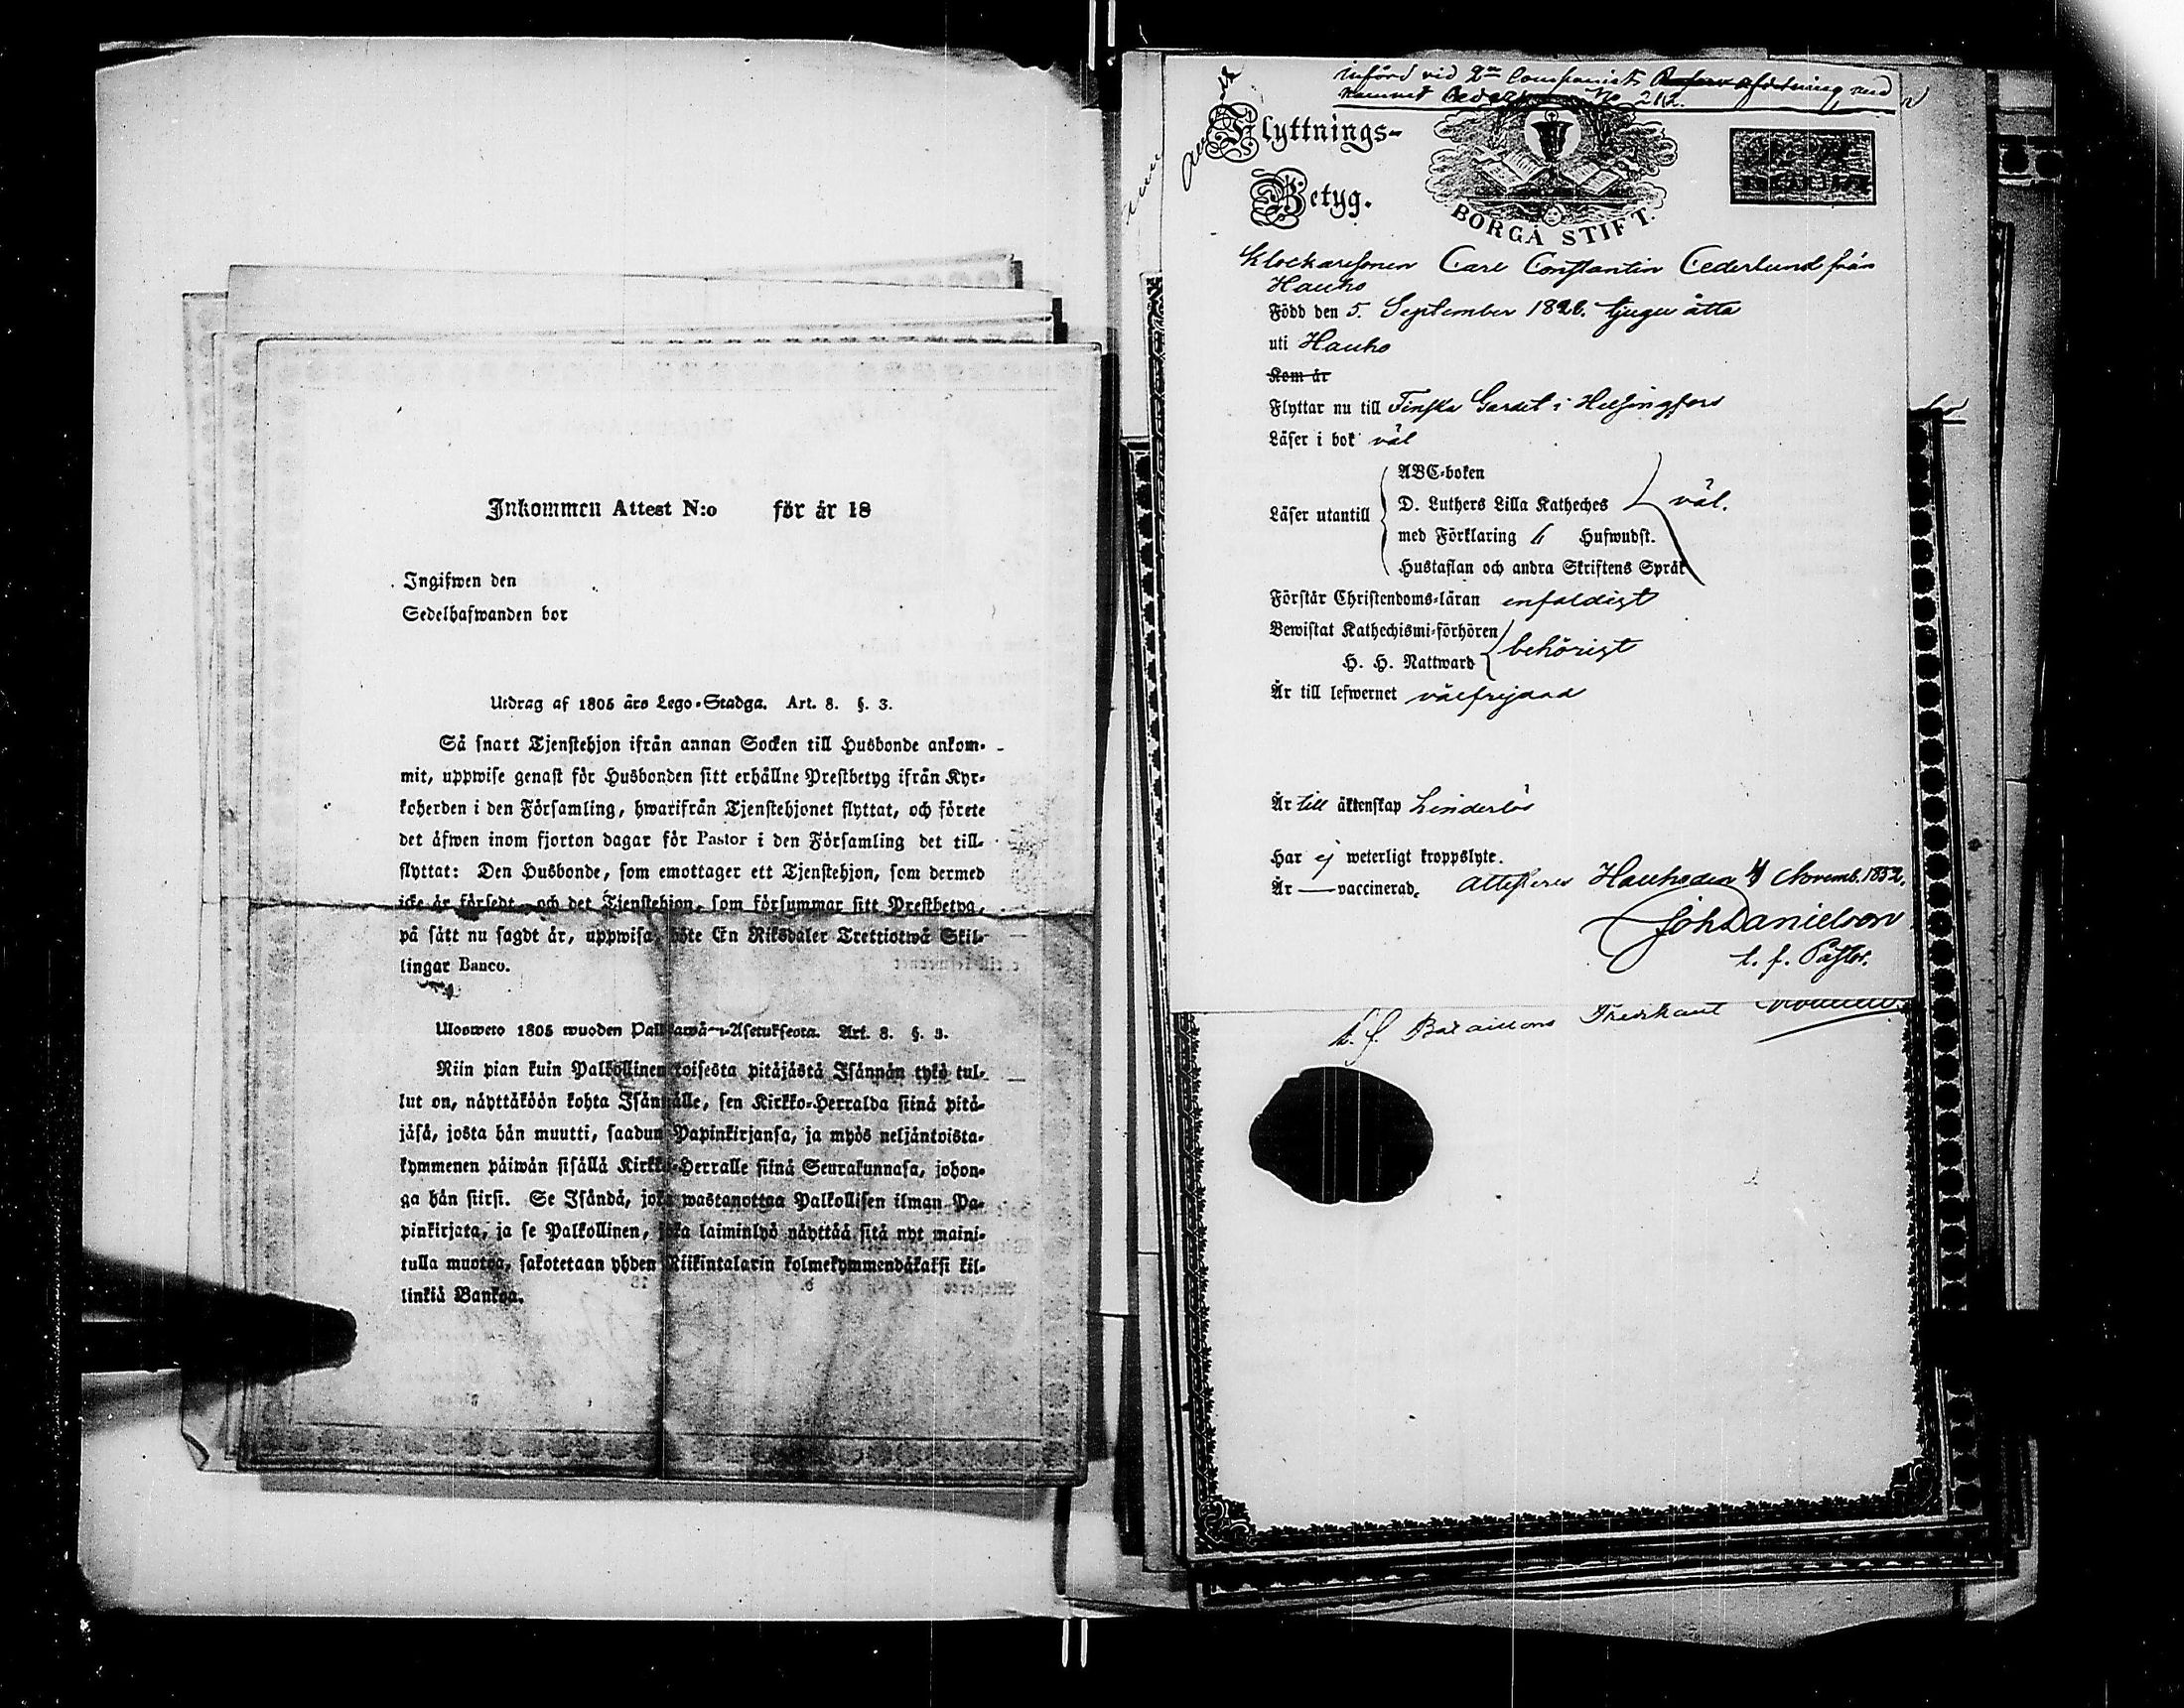 Inkommen Attest N:o för år 18
Ingifwen den
Sedelhafwanden bor
Utdrag af 1805 års Lego-Stadga. Art. 8. §. 3.
Så snart Tjenstehjon ifrån annan Socken till Husbonde ankom-
mit, uppwise genast för Husbonden sitt erhållne Prestbetyg ifrån Kyr-
koherden i den Församling, hwarifrån Tjenstehjonet flyttat, och förete
det äfwen inom fjorton dagar för Pastor i den Församling det till-
flyttat: Den Husbonde, som emottager ett Tjenstehjon, som dermed
icke är försedt, och det Tjenstehjon, som försummar sitt Prestbetyg,
på sätt nu sagdt är, uppwisa, böte En Riksdaler Trettiotwå Skil-
lingar Banco.
Ulosweto 1805 wuoden Palkkawä-Asetuksesta. Art. 8. §. 3.
Niin pian kuin Palkollinen toisesta pitäjästä Isännän tykö tul-
lut on, näyttäköön kohta Isännälle, sen Kirkko-Herralda siinä pitä-
jäsä, josta hän muutti, saadun Papinkirjansa, ja myös neljäntoista-
kymmenen päiwän sisällä Kirkko-Herralle siinä Seurakunnasa, johon-
ga hän siirsi. Se Isändä, joka wastanottaa Palkollisen ilman Pa-
pinkirjata, ja se Palkollinen, joka laiminlyö näyttää sitä nyt maini-
tulla muotoa, sakotetaan yhden Riikintalarin kolmekymmendäkaksi kil-
linkiä Bankoa.
införd vid 2:dra Compagniets med
namnet No 212.
Flyttnings-
Betyg.
BORGÅ STIFT.
Klockaresonen Carl Constantin Cederlund från
Hauho
Född den 5. September 1828. tjugu åtta
uti Hauho
Kom år
Flyttar nu till Finska Gardet i Helsingfors
Läser i bok väl
Läser utantill
ABC-boken
D. Luthers Lilla Katheches
med Förklaring 6 Hufwudst.
Hustaflan och andra Skriftens Språk
väl.
Förstår Christendoms-läran enfaldigt
Bewistat Kathechismi-förhören
H. H. Nattward
behörigt
Är till lefwernet välfrejdad
Är till äktenskap hinderlös
Har ej weterligt kroppslyte.
Är — vaccinerad. Attesteres Hauho den 4 Novemb. 1852.
Joh Danielson
t. f. Pastor.
t. f. Bataillons